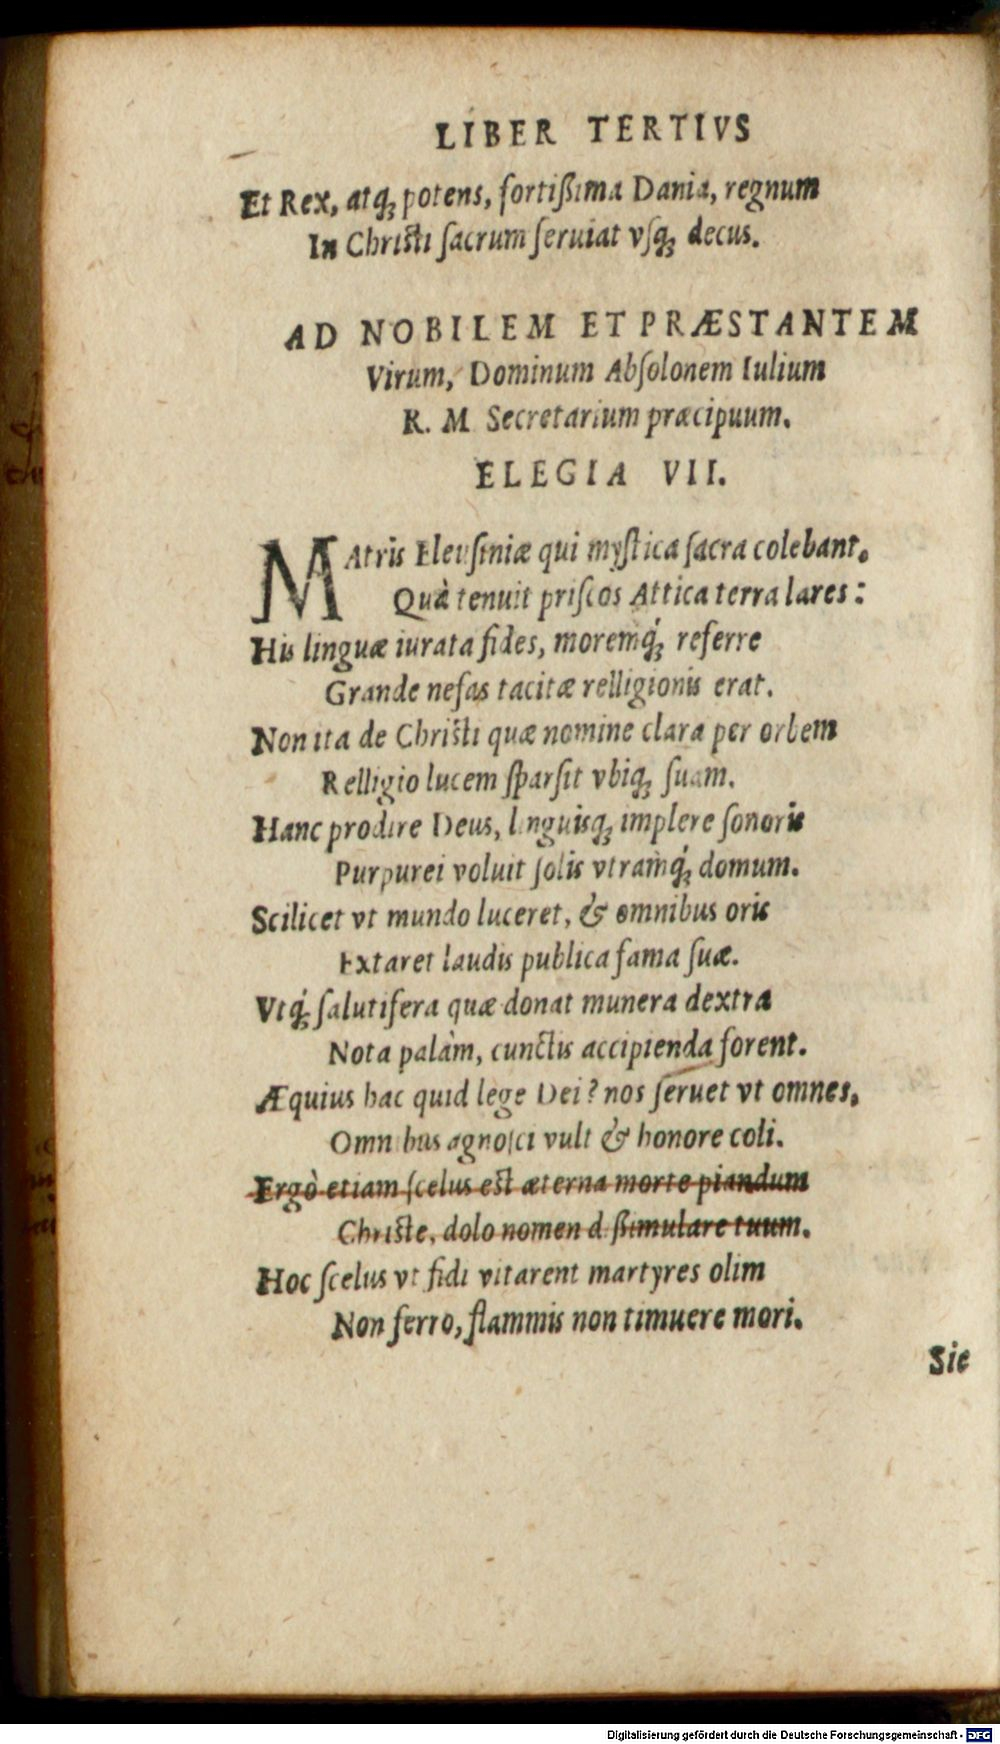 LIBER TERTIVS
Et Rex, atq́; potens, fortißima Dania, regnum
In Christi ſacrum ſeruiat vſq; decus.
AD NOBILEM ET PRÆSTANTEM
Virum, Dominum Abſolonem Iulium
R. M. Secretarium præcipuum.
ELEGIA VII.
MAtris Eleuſiniæ qui myſtica ſacra colebant.
Quà tenuit priſcos Attica terra lares:
His linguæ iurata fides, moremq́; referre
Grande nefas tacitæ relligionis erat.
Non ita de Christi quæ nomine clara per orbem
Relligio lucem ſparſit vbiq; ſuam.
Hanc prodire Deus, linguisq; implere ſonoris
Purpurei voluit ſolis vtramq́; domum.
Scilicet vt mundo luceret, & omnibus oris
Extaret laudis publica fama ſuæ.
Vtq́; ſalutifera quæ donat munera dextra
Nota palàm, cunctis accipienda forent.
Æquius hac quid lege Dei? nos ſeruet vt omnes,
Omnibus agnoſci vult & honore coli.
Ergò etiam ſcelus est æterna morte piandum
Christe, dolo nomen dißimulare tuum.
Hoc ſcelus vt fidi vitarent martyres olim
Non ferro, flammis non timuere mori.
Sic
Digitalisierung gefördert durch die Deutsche Forschungsgemeinschaft - DFG